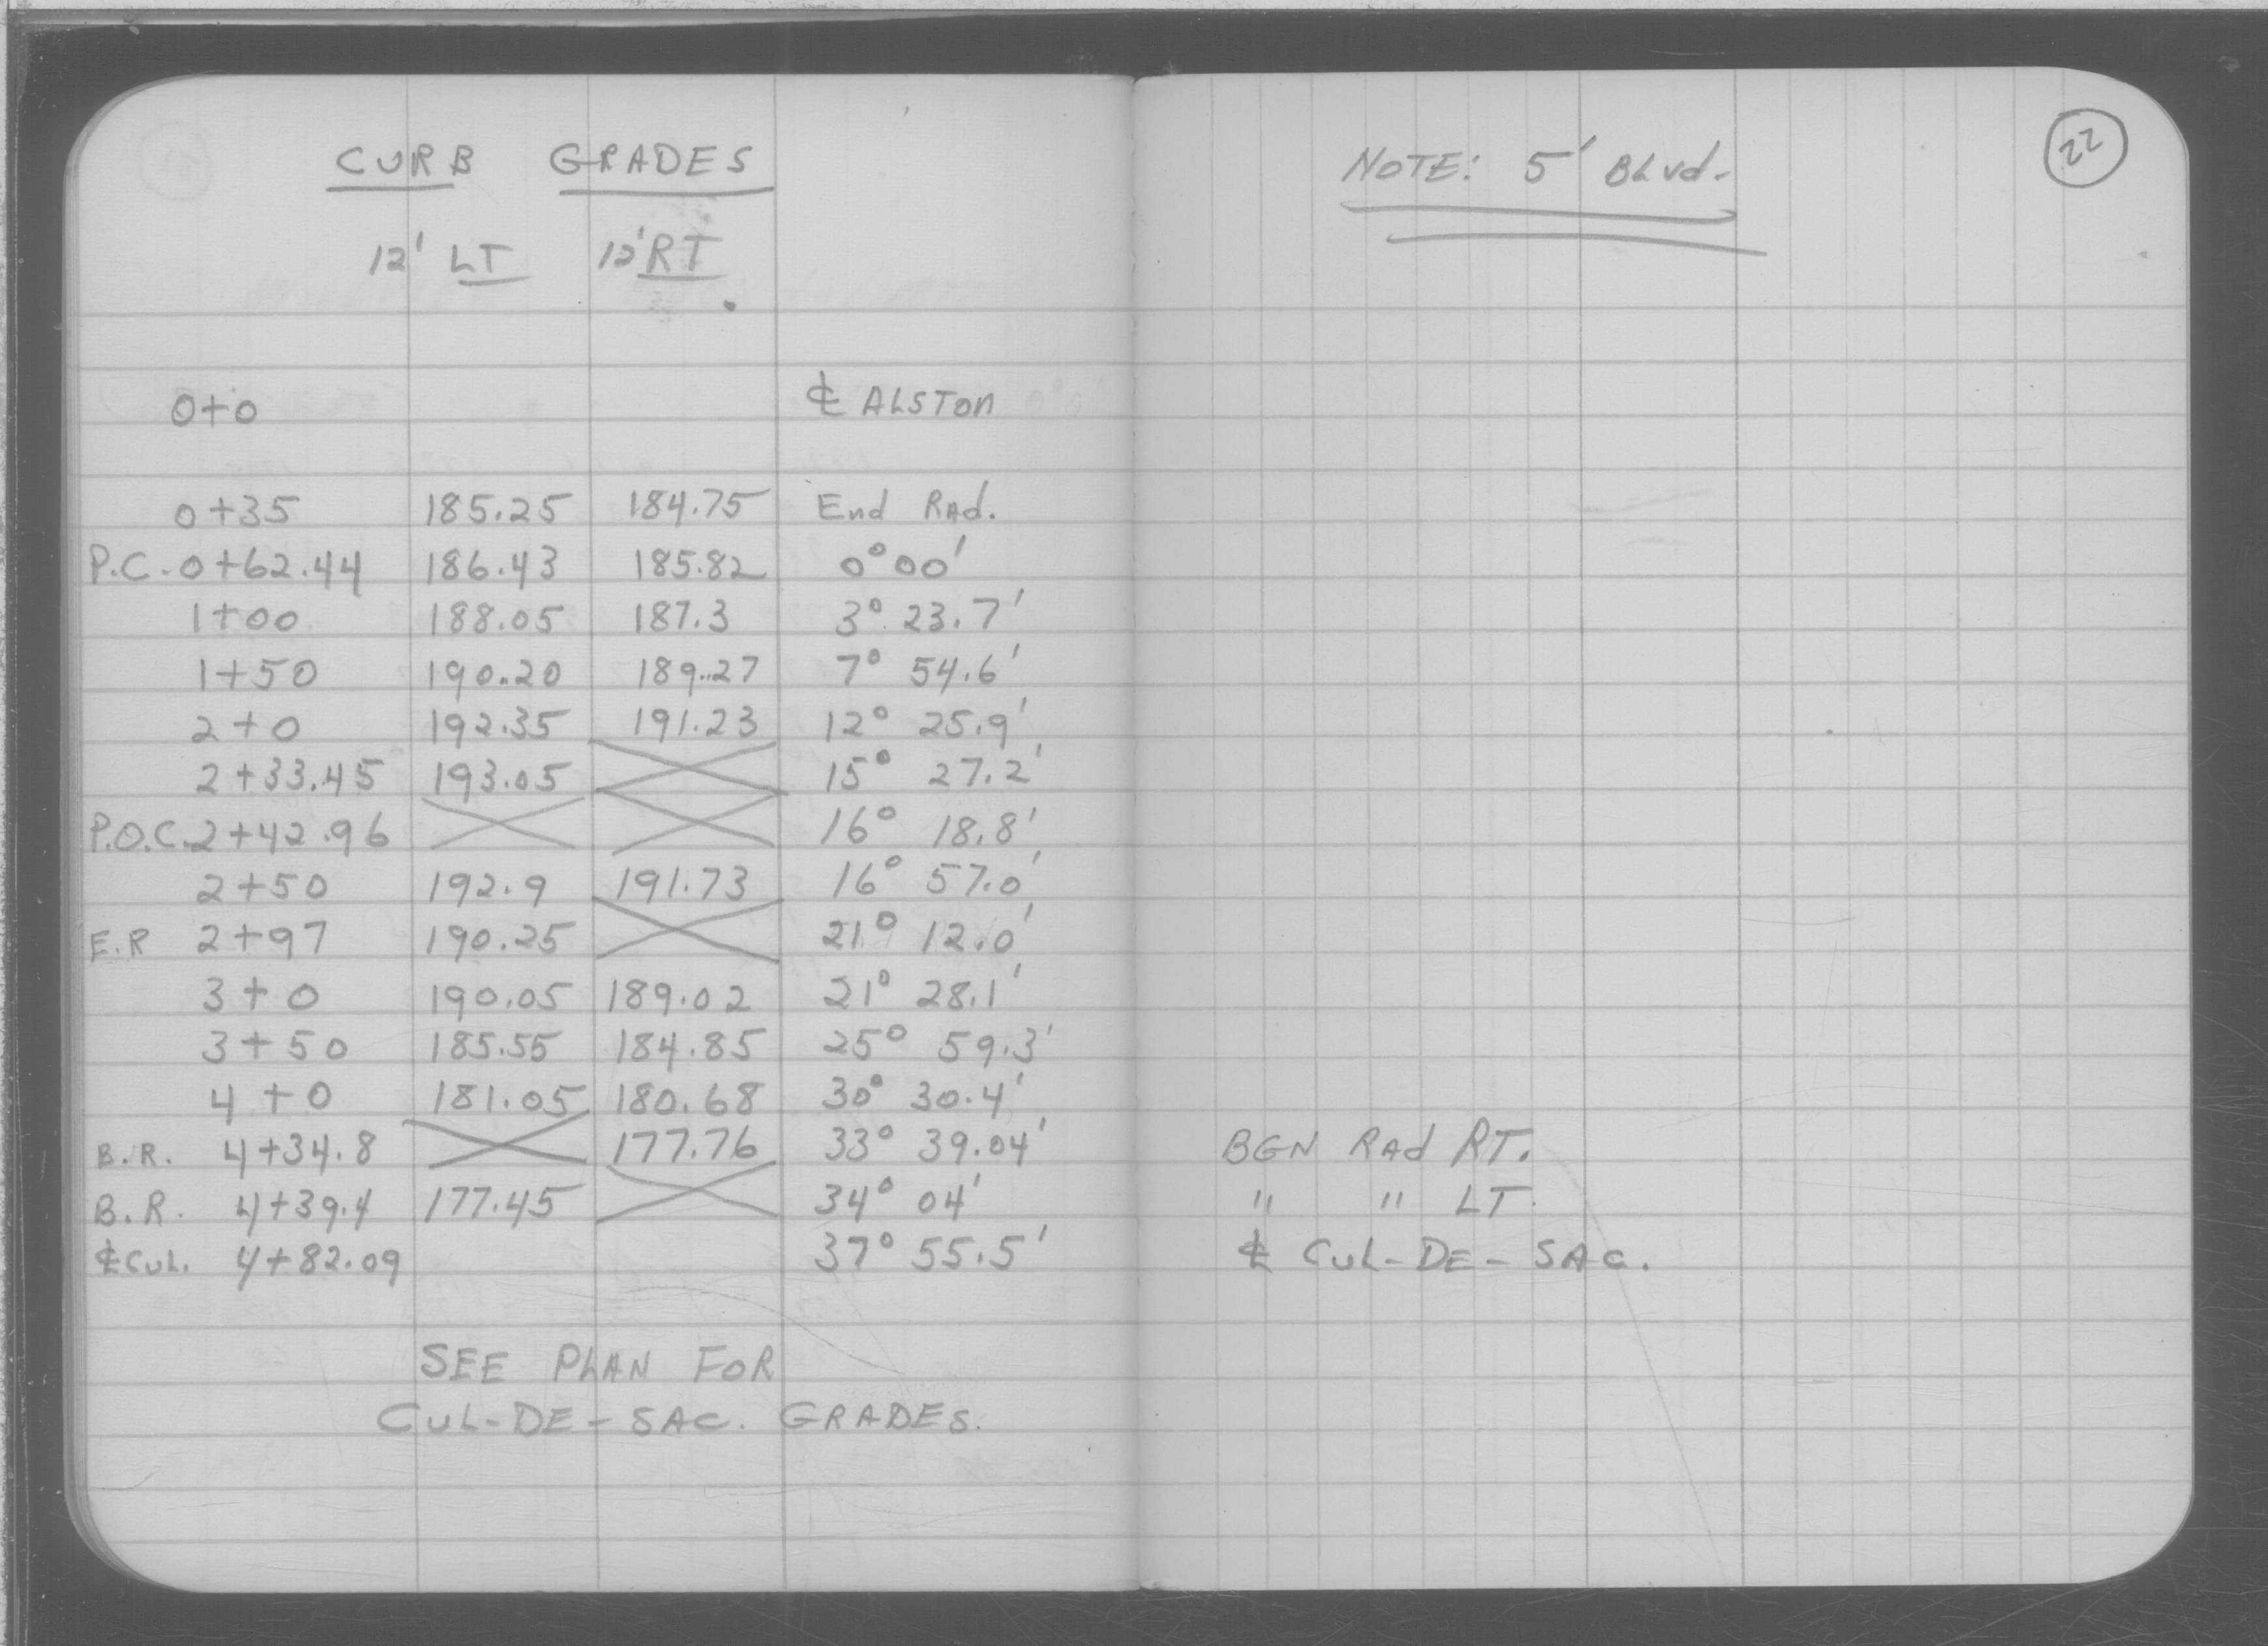 CURB GRADES
12' LT 12' RT
0+0 ℄ ALSTON
0+35 185.25 184.75 End Rad.
P.C. 0+62.44 186.43 185.82 0° 00'
1+00 188.05 187.3 3° 23.7'
1+50 190.20 189.27 7° 54.6'
2+0 192.35 191.23 12° 25.9'
2+33.45 193.05 15° 27.2'
P.O.C. 2+42.96 16° 18.8'
2+50 192.9 191.73 16° 57.0'
E.R 2+97 190.25 21° 12.0'
3+0 190.05 189.02 21° 28.1'
3+50 185.55 184.85 25° 59.3'
4+0 181.05 180.68 30° 30.4'
B.R. 4+34.8 177.76 33° 39.04'
B.R. 4+39.4 177.45 34° 04'
℄ CUL. 4+82.09 37° 55.5'
SEE PLAN FOR
CUL-DE-SAC. GRADES.
NOTE: 5' BLvd.
22
BGN RAd RT.
" " LT.
℄ CUL-DE-SAC.